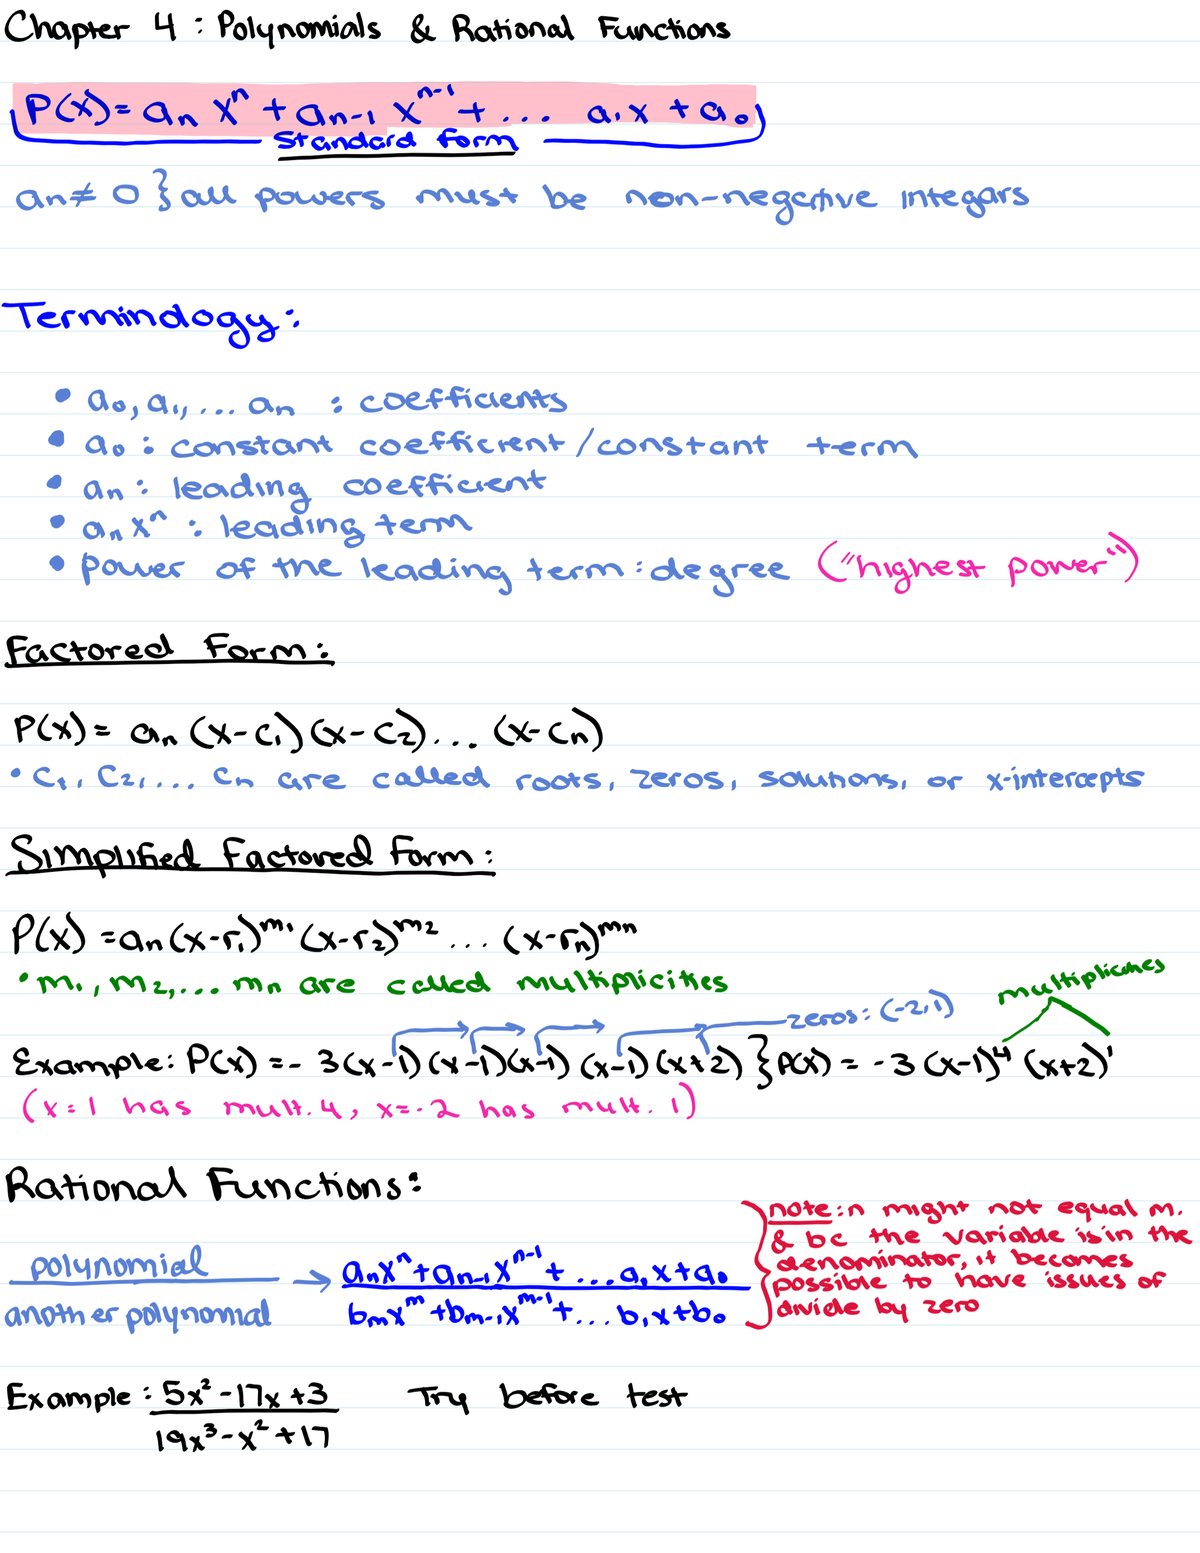 Chapter 4 : Polynomials & Rational Functions
P(x) = aₙ xⁿ + aₙ₋₁ xⁿ⁻¹ + ... a₁x + a₀
Standard form
aₙ ≠ 0 } all powers must be non-negative integars
Terminology:
• a₀, a₁, ... aₙ : coefficients
• a₀ : constant coefficient / constant term
• aₙ : leading coefficient
• aₙ xⁿ : leading term
• power of the leading term : degree ("highest power")
Factored Form:
P(x) = aₙ (x-c₁)(x-c₂)... (x-cₙ)
• c₁, c₂, ... cₙ are called roots, zeros, solutions, or x-intercepts
Simplified Factored Form:
P(x) = aₙ (x-r₁)^m₁ (x-r₂)^m₂ ... (x-rₙ)^mₙ
• m₁, m₂, ... mₙ are called multiplicities
multiplicities
zeros: (-2,1)
Example: P(x) = -3(x-1)(x-1)(x-1)(x-1)(x+2) } P(x) = -3(x-1)⁴ (x+2)¹
(x=1 has mult. 4, x=-2 has mult. 1)
Rational Functions:
polynomial
another polynomial
→ aₙxⁿ + aₙ₋₁xⁿ⁻¹ + ... a₁x + a₀
bₘxᵐ + bₘ₋₁xᵐ⁻¹ + ... b₁x + b₀
note: n might not equal m.
& bc the variable is in the
denominator, it becomes
possible to have issues of
divide by zero
Example : 5x² - 17x + 3 Try before test
19x³ - x² + 17